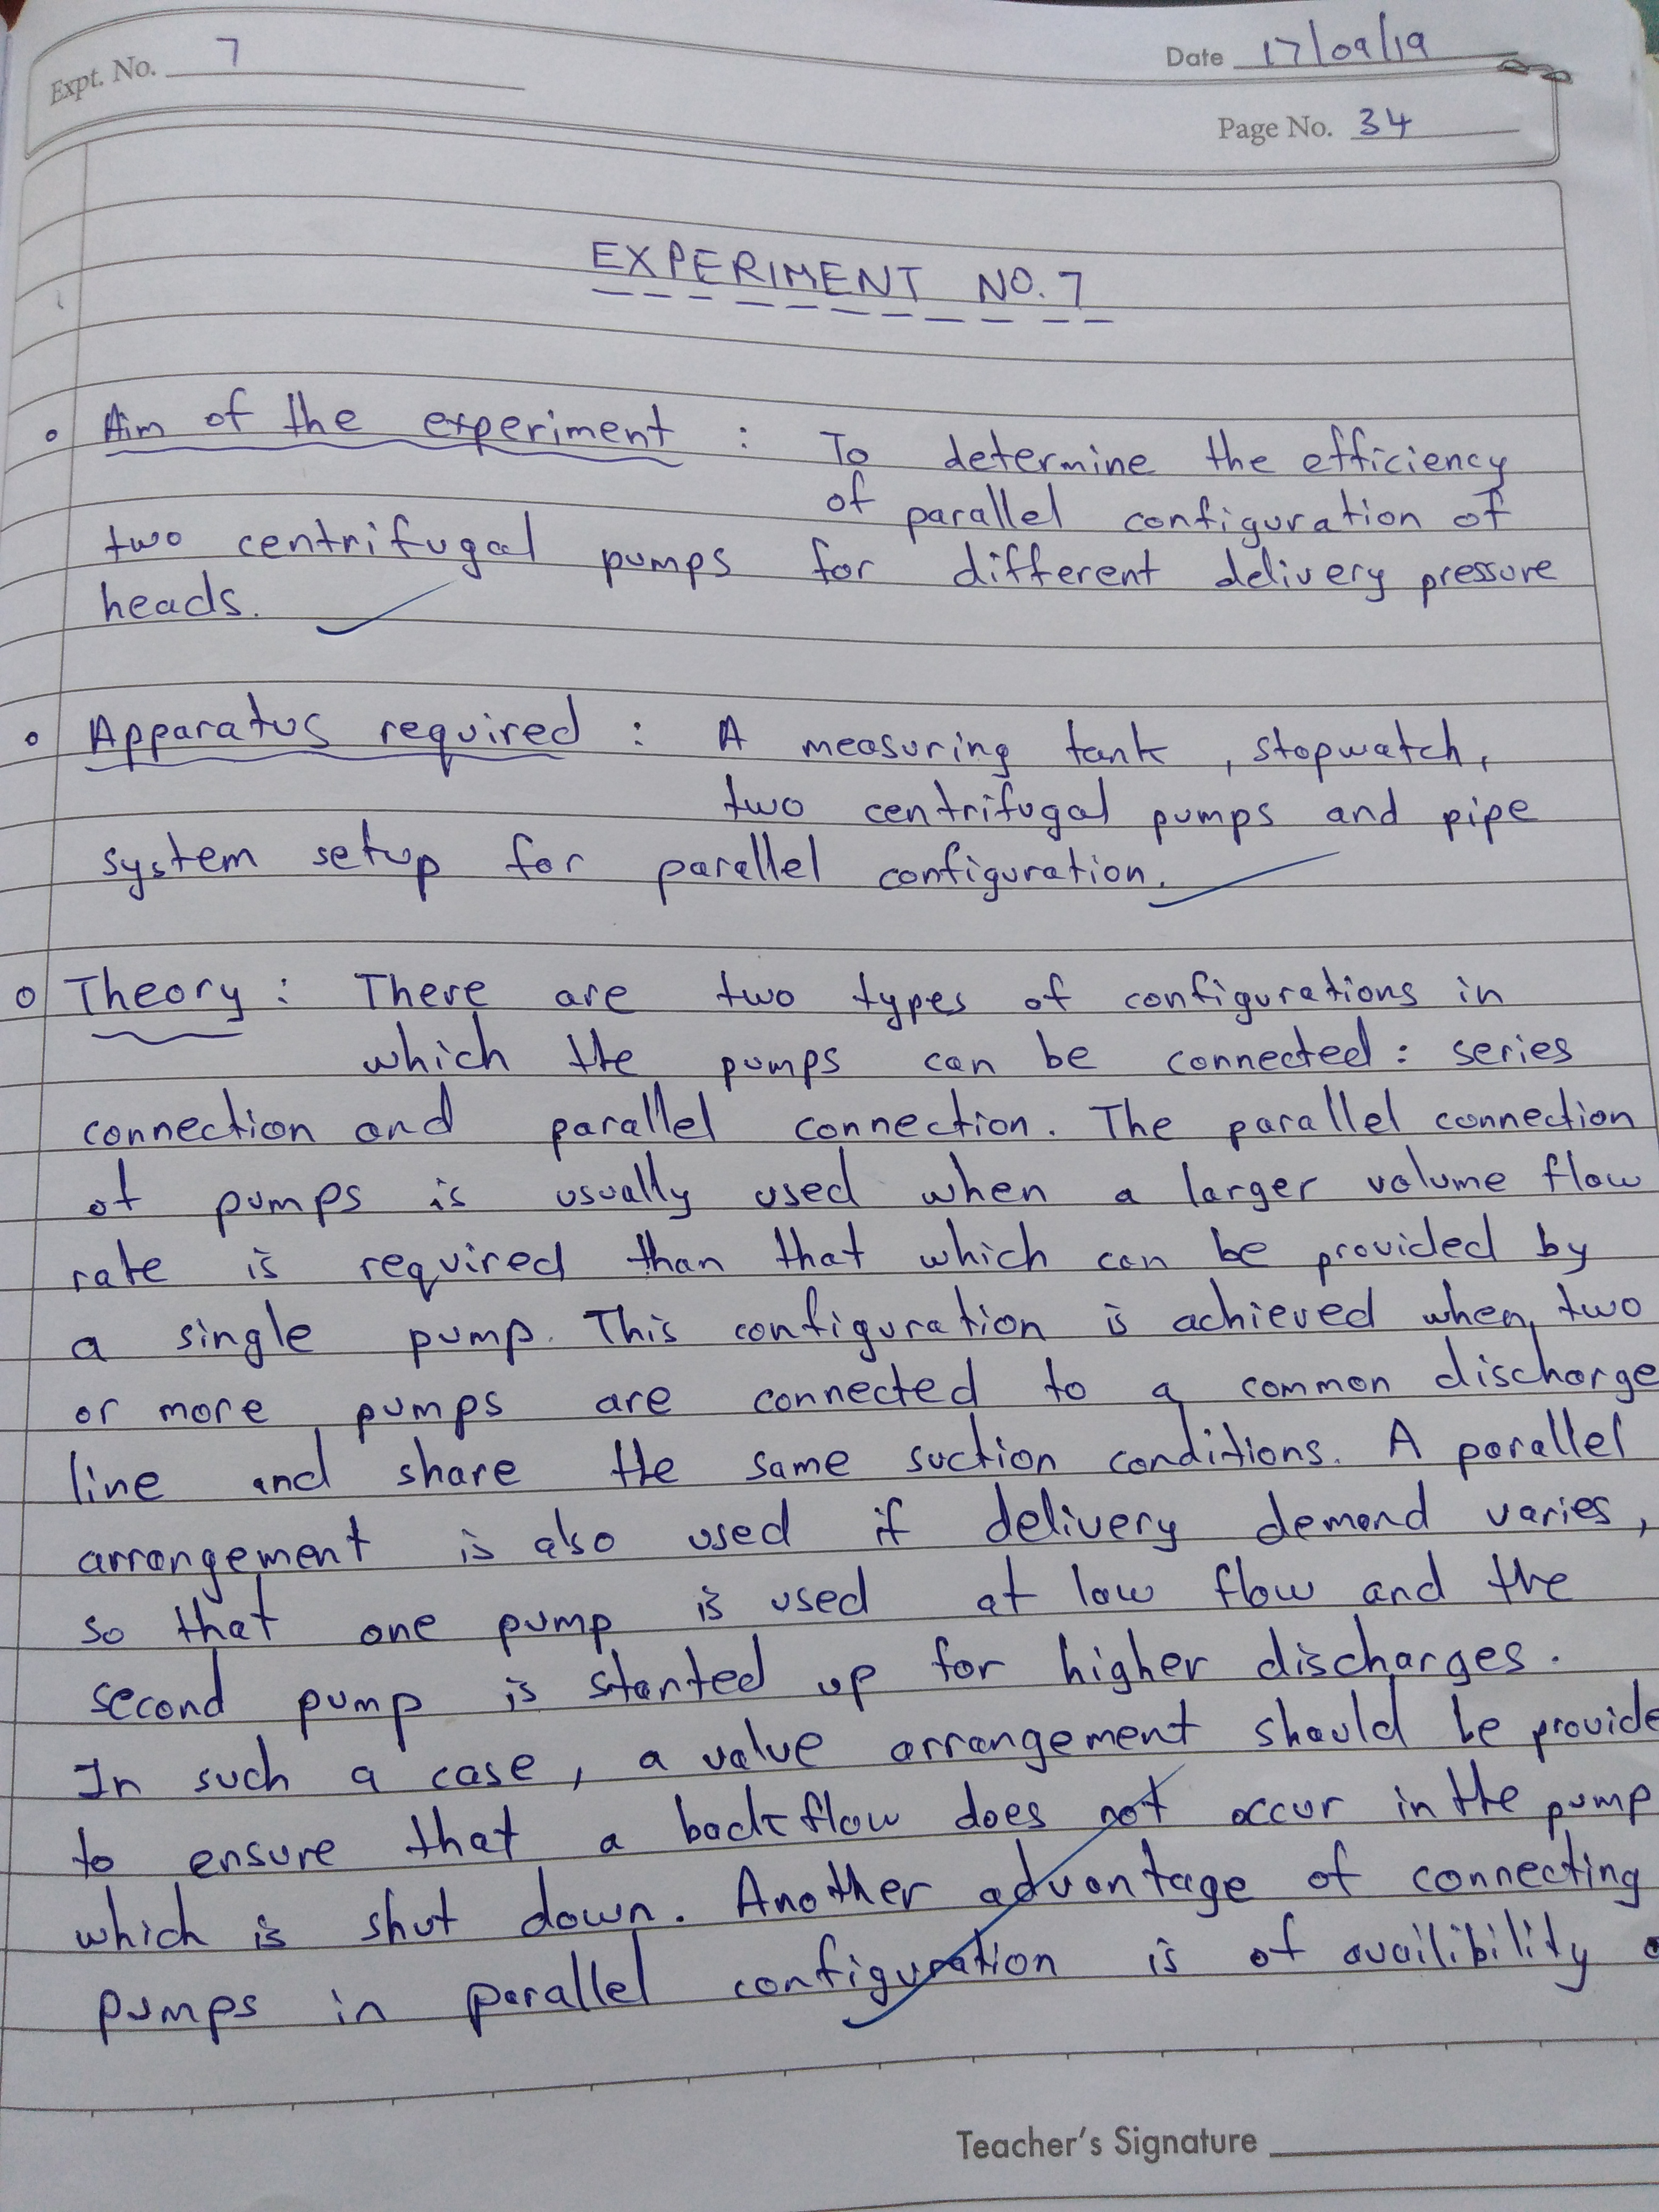 Expt. No. 7
Date 17/09/19
Page No. 34
EXPERIMENT NO. 7
Aim of the experiment : To determine the efficiency
of parallel configuration of
two centrifugal pumps for different delivery pressure
heads.
Apparatus required : A measuring tank, stopwatch,
two centrifugal pumps and pipe
system setup for parallel configuration.
Theory : There are two types of configurations in
which the pumps can be connected : series
connection and parallel connection. The parallel connection
of pumps is usually used when a larger volume flow
rate is required than that which can be provided by
a single pump. This configuration is achieved when, two
or more pumps are connected to a common discharge
line and share the same suction conditions. A parallel
arrangement is also used if delivery demand varies,
so that one pump is used at low flow and the
second pump is started up for higher discharges.
In such a case, a value arrangement should be provide
to ensure that a backflow does not occur in the pump
which is shut down. Another advantage of connecting
pumps in parallel configuration is of availibility
Teacher's Signature